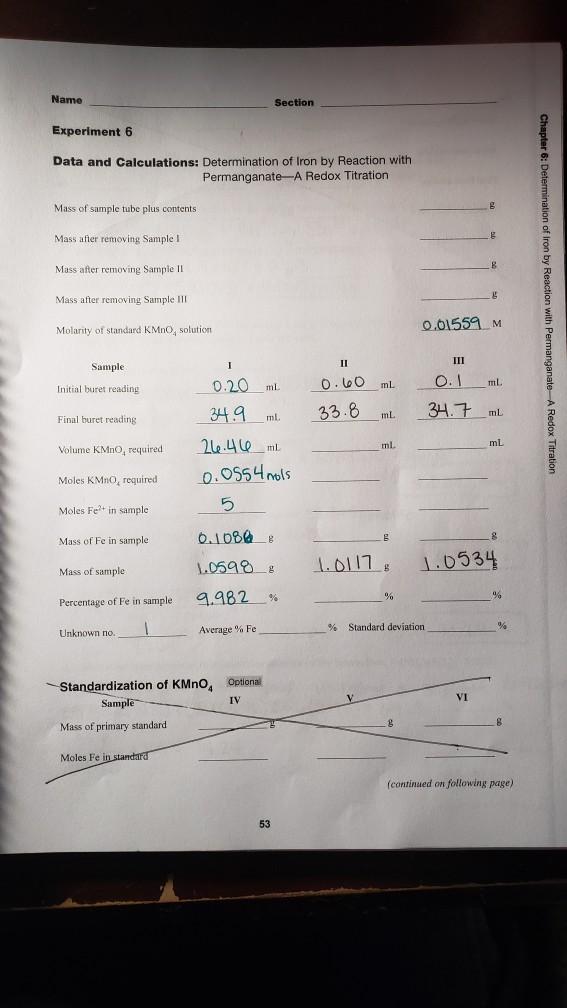 Name Section
Experiment 6
Data and Calculations: Determination of Iron by Reaction with
Permanganate—A Redox Titration
Mass of sample tube plus contents g
Mass after removing Sample I g
Mass after removing Sample II g
Mass after removing Sample III g
Molarity of standard KMnO₄ solution 0.01559 M
Sample I II III
Initial buret reading 0.20 mL 0.60 mL 0.1 mL
Final buret reading 34.9 mL 33.8 mL 34.7 mL
Volume KMnO₄ required 26.46 mL mL mL
Moles KMnO₄ required 0.0554 mols
Moles Fe²⁺ in sample 5
Mass of Fe in sample g g g
Mass of sample 1.0598 g 1.0117 g 1.0534 g
Percentage of Fe in sample 9.982 % % %
Unknown no. 1 Average % Fe % Standard deviation %
Standardization of KMnO₄ Optional
Sample IV V VI
Mass of primary standard g g g
Moles Fe in standard
(continued on following page)
53
Chapter 6: Determination of Iron by Reaction with Permanganate—A Redox Titration